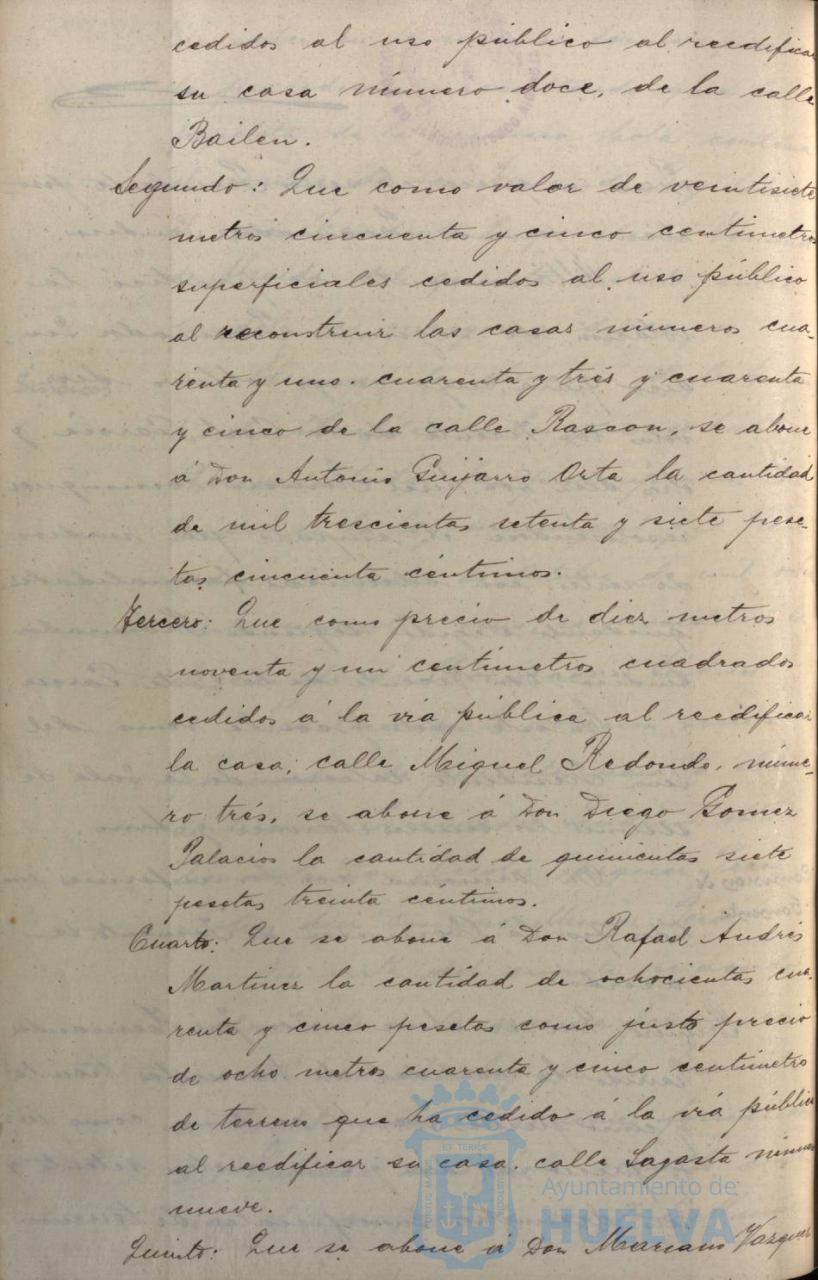 cedidos al uso público al reedificar
su casa número doce, de la calle
Bailen.
Segundo: Que como valor de veintisiete
metros cincuenta y cinco centimetros
superficiales cedidos al uso público
al reconstruir las casas números cua-
renta y uno. cuarenta y trés y cuarenta
y cinco de la calle Rascon, se abone
á Don Antonio Guijarro Orta la cantidad
de mil trescientas setenta y siete pese-
tas cincuenta céntimos.
Tercero: Que como precio de diez metros
noventa y un centímetros cuadrados
cedidos á la vía pública al reedificar
la casa, calle Miguel Redondo, núme-
ro trés, se abone á Don Diego Gomez
Palacios la cantidad de quinientas siete
pesetas treinta céntimos.
Cuarto: Que se abone á Don Rafael Andrés
Martinez la cantidad de ochocientas cua-
renta y cinco pesetas como justo precio
de ocho metros cuarenta y cinco centimetro
de terreno que ha cedido á la vía pública
al reedificar su casa. calle Sagasta número
nueve.
Quinto: Que se abone á Don Mariano Vazquez
Ayuntamiento de
HUELVA